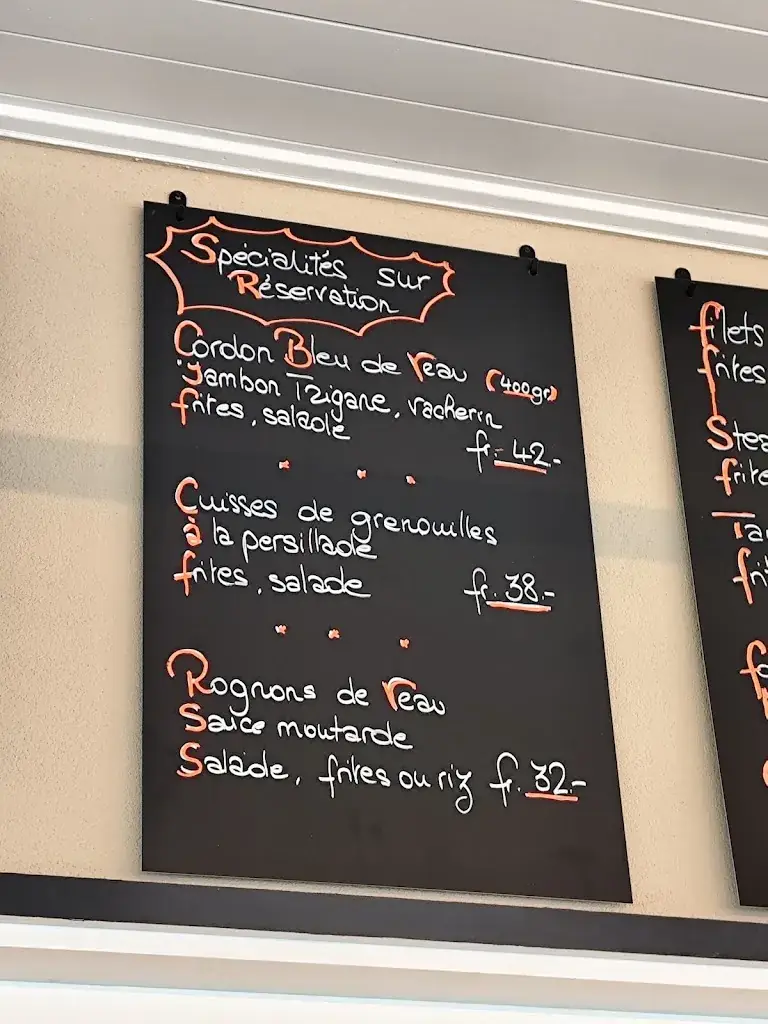 Spécialités sur
Réservation
Cordon Bleu de Veau (400gr)
Jambon Tzigane, vacherin
frites, salade
fr. 42.-
Cuisses de grenouilles
à la persillade
frites, salade fr. 38.-
Rognons de Veau
Sauce moutarde
Salade, frites ou riz fr. 32.-
filets
frites
frite